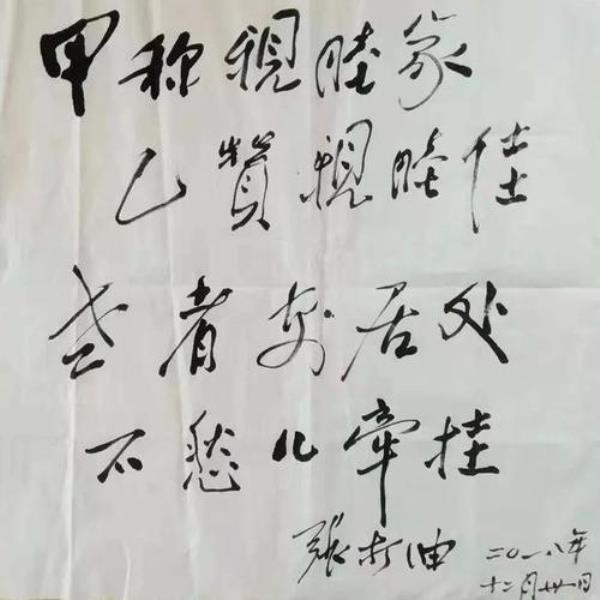 甲称親睦家
乙贊親睦佳
老者安居处
不愁儿牵挂
張打油 二〇一八年
十二月卅一日